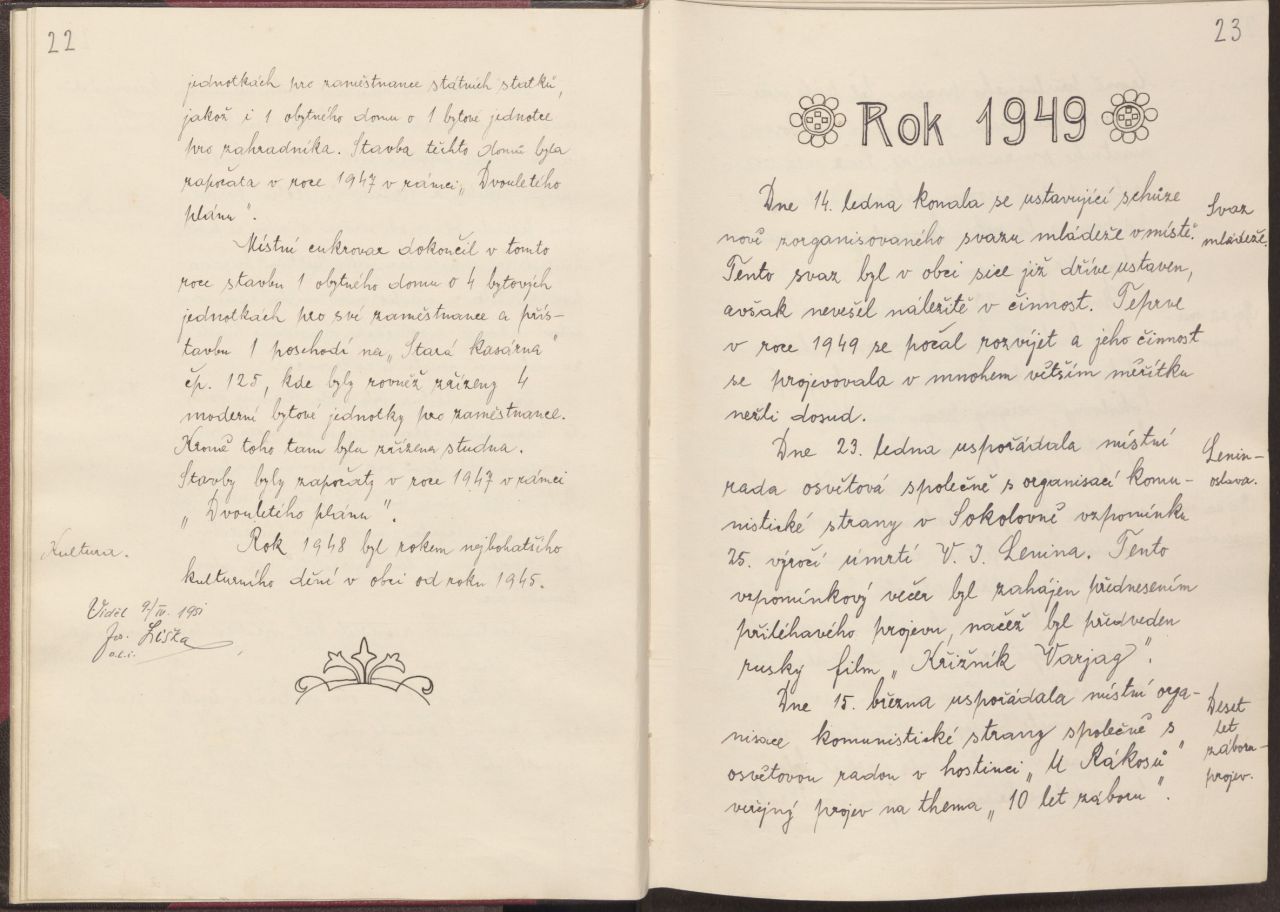 22
jednotkách pro zaměstnance státních statků,
jakož i 1 obytného domu o 1 bytové jednotce
pro zahradníka. Stavba těchto domů byla
započata v roce 1947 v rámci „Dvouletého
plánu".
Místní cukrovar dokončil v tomto
roce stavbu 1 obytného domu o 4 bytových
jednotkách pro své zaměstnance a přís-
tavbu 1 poschodí na „Stará kasárna"
čp. 125, kde byly rovněž zřízeny 4
moderní bytové jednotky pro zaměstnance.
Kromě toho tam byla zřízena studna.
Stavby byly započaty v roce 1947 v rámci
„Dvouletého plánu".
Kultura.
Rok 1948 byl rokem nejbohatšího
kulturního dění v obci od roku 1945.
Viděl 9/IV. 1951
Jos. Liška
23
Rok 1949
Dne 14. ledna konala se ustavující schůze
nově zorganisovaného svazu mládeže v místě.
Tento svaz byl v obci sice již dříve ustaven,
avšak nevešel náležitě v činnost. Teprve
v roce 1949 se počal rozvíjet a jeho činnost
se projevovala v mnohem větším měřítku
nežli dosud.
Svaz
mládeže.
Dne 23. ledna uspořádala místní
rada osvětová společně s organisací komu-
nistické strany v Sokolovně vzpomínku
25. výročí úmrtí V. I. Lenina. Tento
vzpomínkový večer byl zahájen přednesením
přiléhavého projevu, načež byl předveden
ruský film „Křižník Varjag".
Lenin-
oslava.
Dne 15. března uspořádala místní orga-
nisace komunistické strany společně s
osvětovou radou v hostinci „U Rákosů"
veřejný projev na thema „10 let záboru".
Deset
let
záboru-
projev.